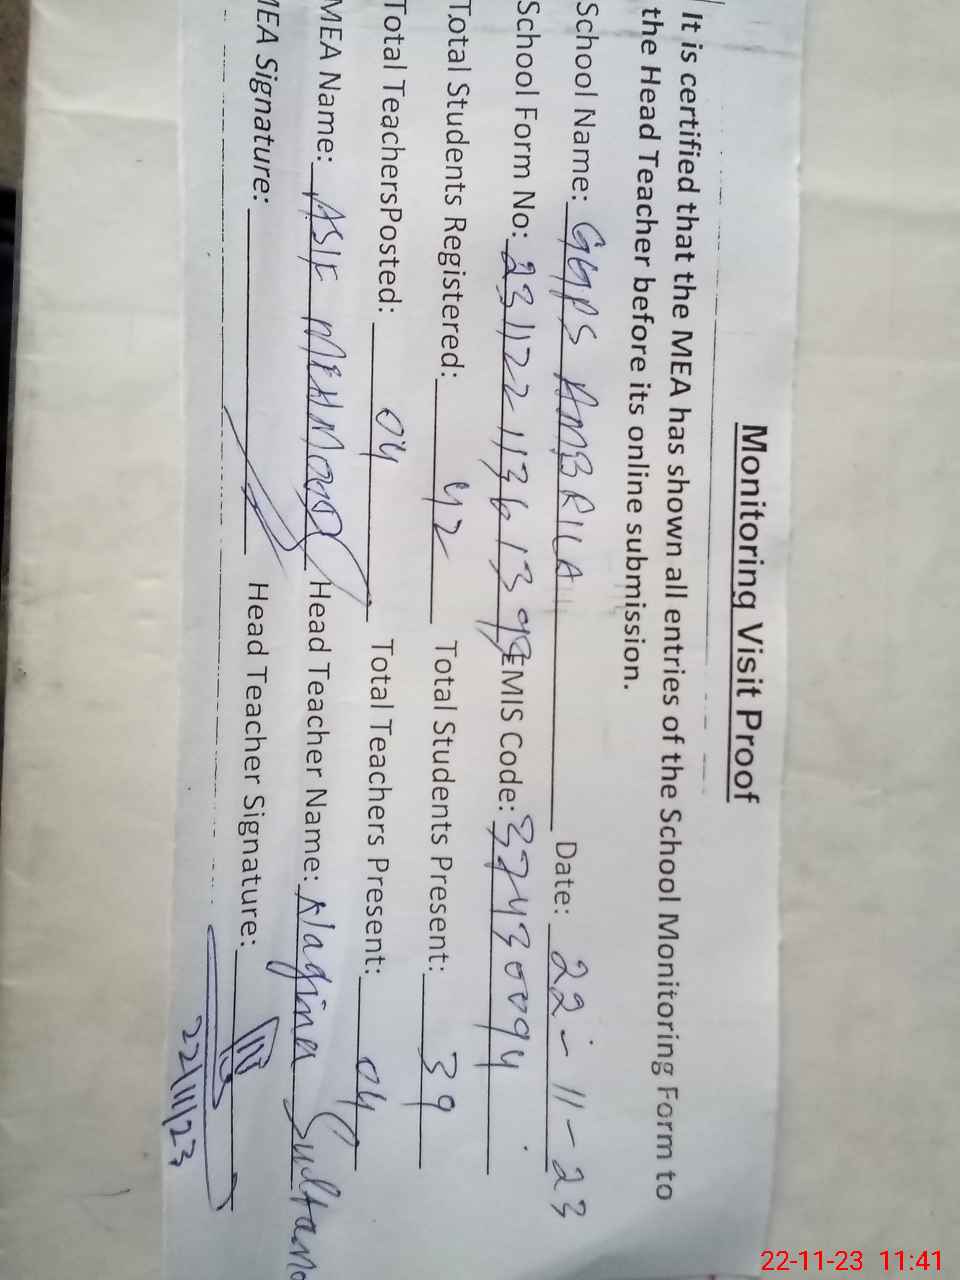 Monitoring Visit Proof
It is certified that the MEA has shown all entries of the School Monitoring Form to
the Head Teacher before its online submission.
School Name: GGPS AMBRILA Date: 22-11-23
School Form No: 23112211361399 EMIS Code: 37430094
Total Students Registered: 42 Total Students Present: 39
Total TeachersPosted: 04 Total Teachers Present: 04
MEA Name: ASIF MEHMOOD Head Teacher Name: Nagina Sultana
MEA Signature: Head Teacher Signature:
22/11/23
22-11-23 11:41